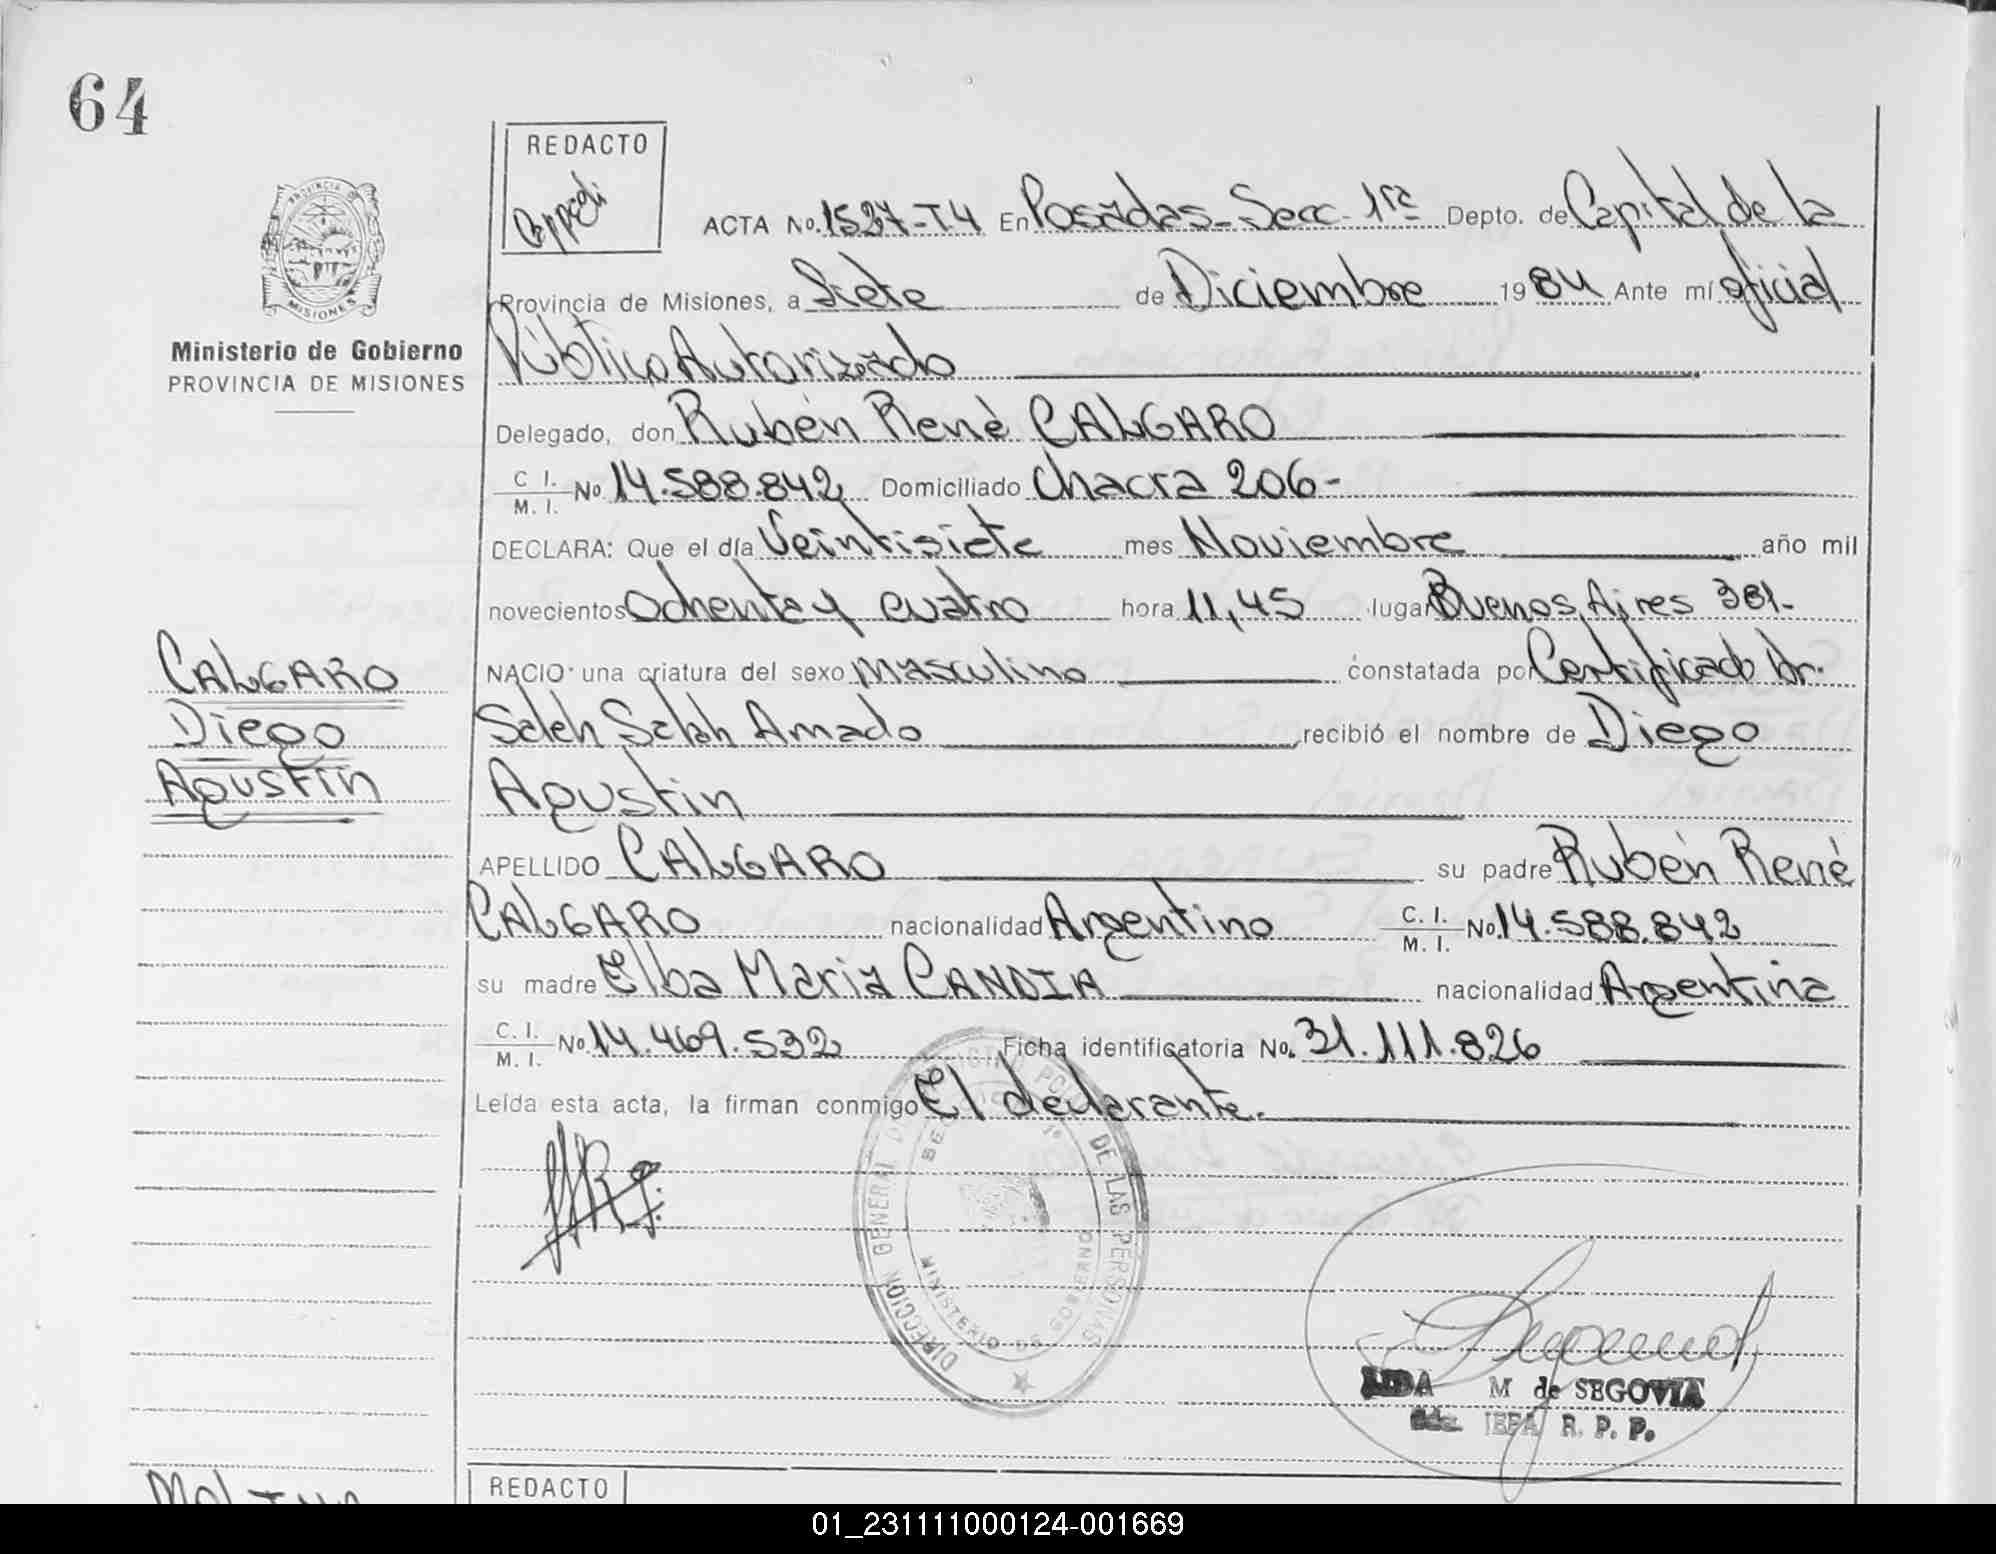 64
REDACTO
ACTA No. 1527-T4 En Posadas-Secc. 1ra Depto. de Capital de la
PROVINCIA DE
MISIONES
Provincia de Misiones, a Siete de Diciembre 1984 Ante mí oficial
Ministerio de Gobierno
PROVINCIA DE MISIONES
Público Autorizado
Delegado, don Rubén René CALGARO
C. I.
M. I. No 14.588.842 Domiciliado Chacra 206-
DECLARA: Que el día Veintisiete mes Noviembre año mil
novecientos ochenta y cuatro hora 11,45 lugar Buenos Aires 381-
NACIO una criatura del sexo masculino constatada por Certificado Dr.
CALGARO
Diego
Agustin
Saleh Salah Amado recibió el nombre de Diego
Agustin
APELLIDO CALGARO su padre Rubén René
CALGARO nacionalidad Argentino C. I.
M. I. No. 14.588.842
su madre Elba Maria CANDIA nacionalidad Argentina
C. I.
M. I. No 14.469.532 Ficha identificatoria No. 31.111.826
Leída esta acta, la firman conmigo El declarante.
DIRECCION GENERAL DE DE LAS PERSONAS
MINISTERIO DE GOBIERNO
M de SEGOVIA
R. P. P.
REDACTO
01_231111000124-001669